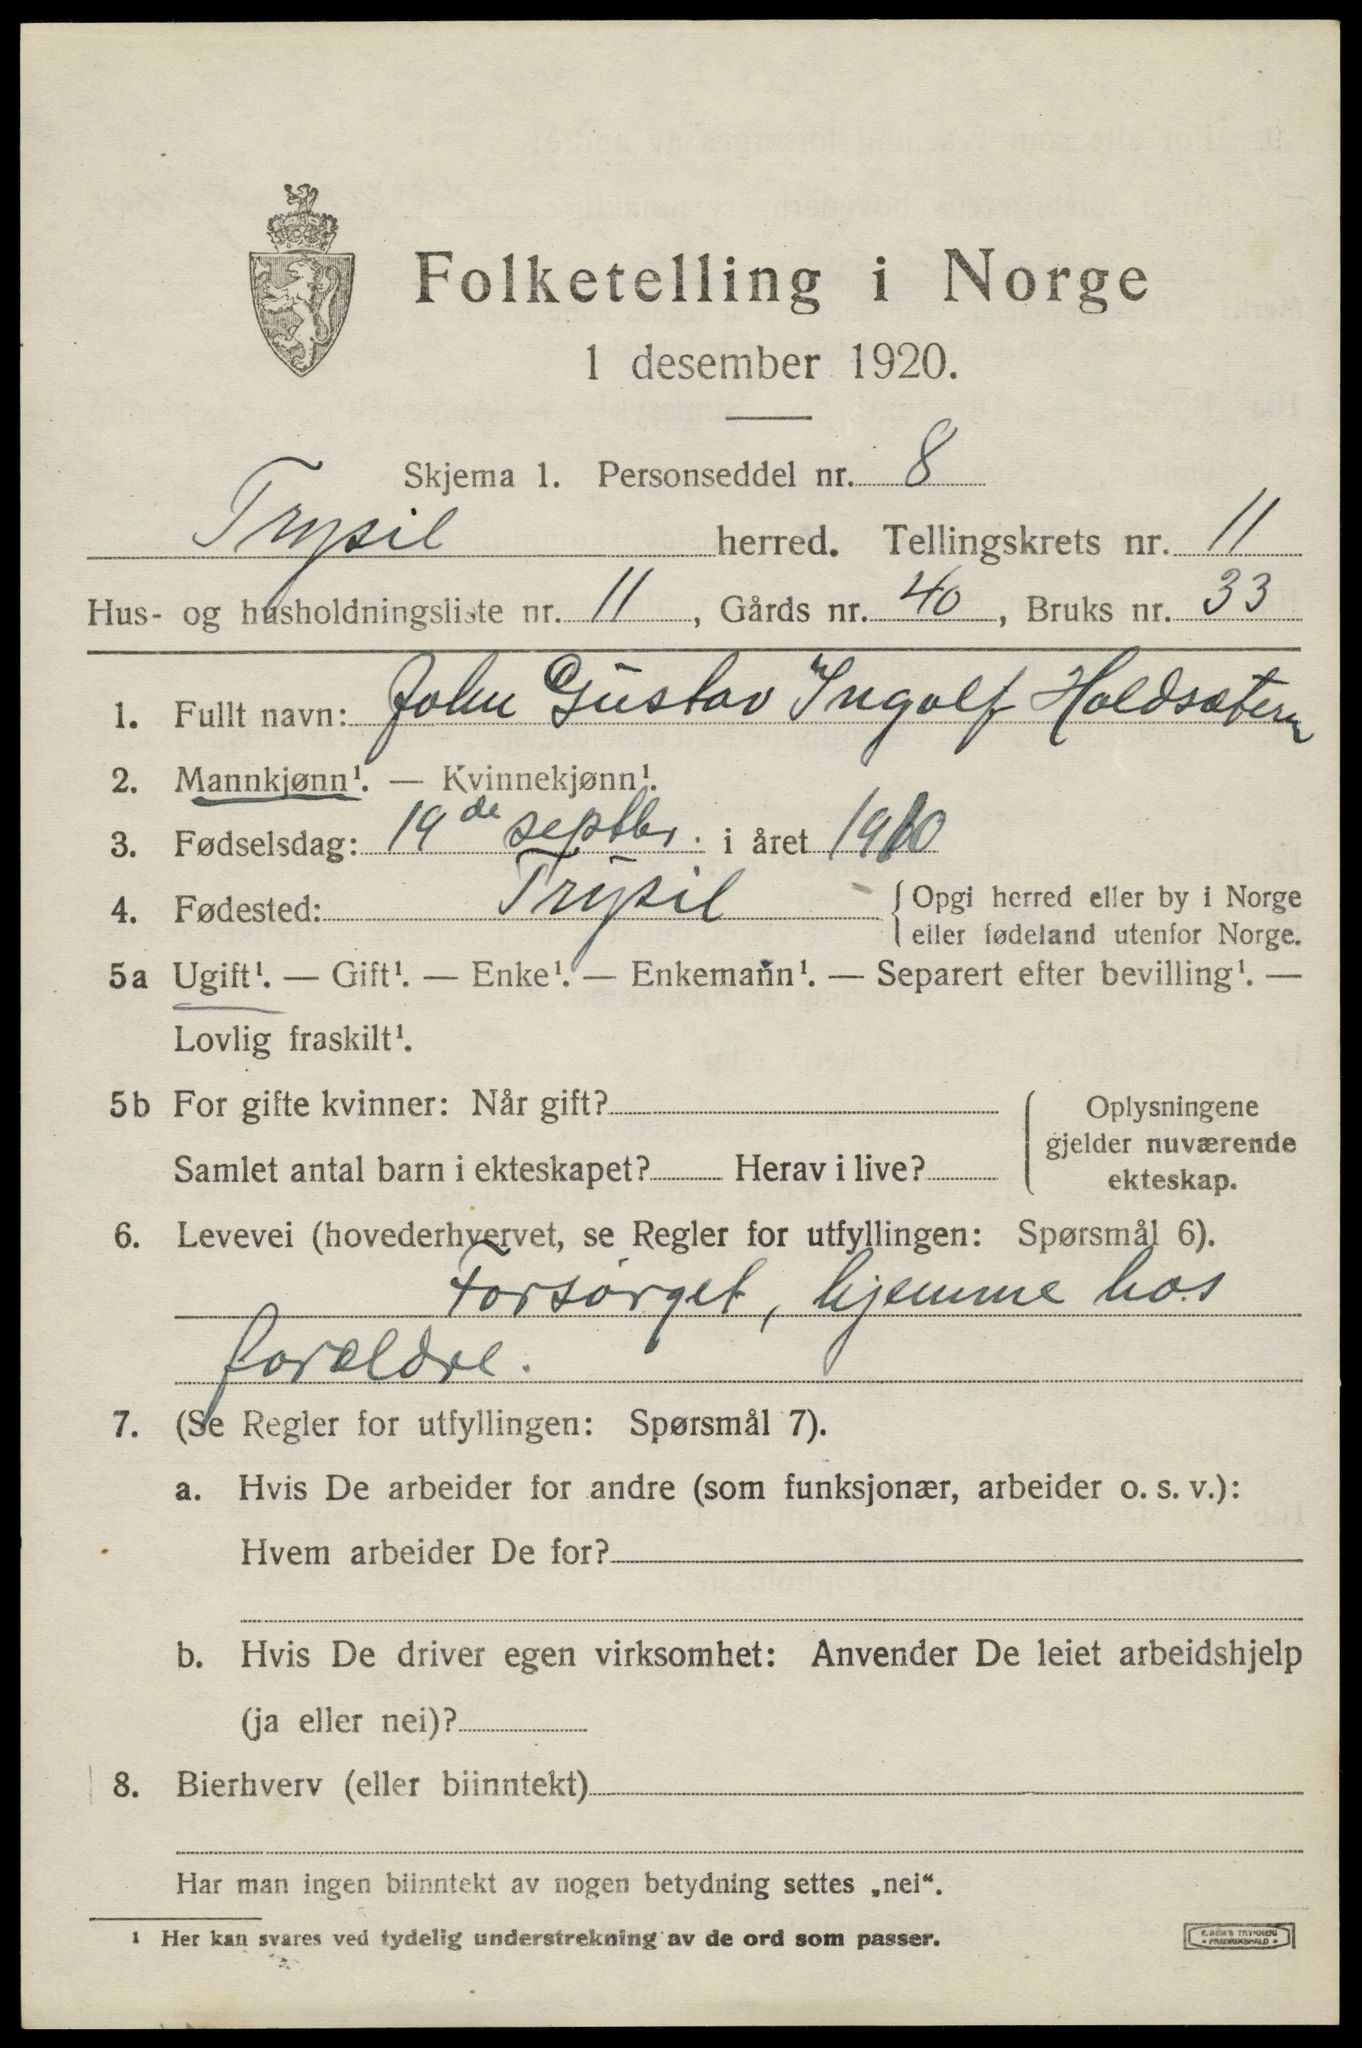 Folketelling i Norge
1 desember 1920.
Skjema 1. Personseddel nr. 8
Trysil herred. Tellingskrets nr. 11
Hus- og husholdningsliste nr. 11, Gårds nr. 40, Bruks nr. 33
1. Fullt navn: John Gustav Ingolf Holdsæteren
2. Mannkjønn¹. — Kvinnekjønn¹.
3. Fødselsdag: 19de septbr. i året 1910
4. Fødested: Trysil { Opgi herred eller by i Norge
eller fødeland utenfor Norge.
5a Ugift¹. — Gift¹. — Enke¹. — Enkemann¹. — Separert efter bevilling¹. —
Lovlig fraskilt¹.
5b For gifte kvinner: Når gift?
Samlet antal barn i ekteskapet? Herav i live?
Oplysningene
gjelder nuværende
ekteskap.
6. Levevei (hovederhvervet, se Regler for utfyllingen: Spørsmål 6).
Forsørget, hjemme hos
forældre.
7. (Se Regler for utfyllingen: Spørsmål 7).
a. Hvis De arbeider for andre (som funksjonær, arbeider o. s. v.):
Hvem arbeider De for?
b. Hvis De driver egen virksomhet: Anvender De leiet arbeidshjelp
(ja eller nei)?
8. Bierhverv (eller biinntekt)
Har man ingen biinntekt av nogen betydning settes „nei“.
¹ Her kan svares ved tydelig understrekning av de ord som passer.
TRYKKERI
FREDRIKSHALD